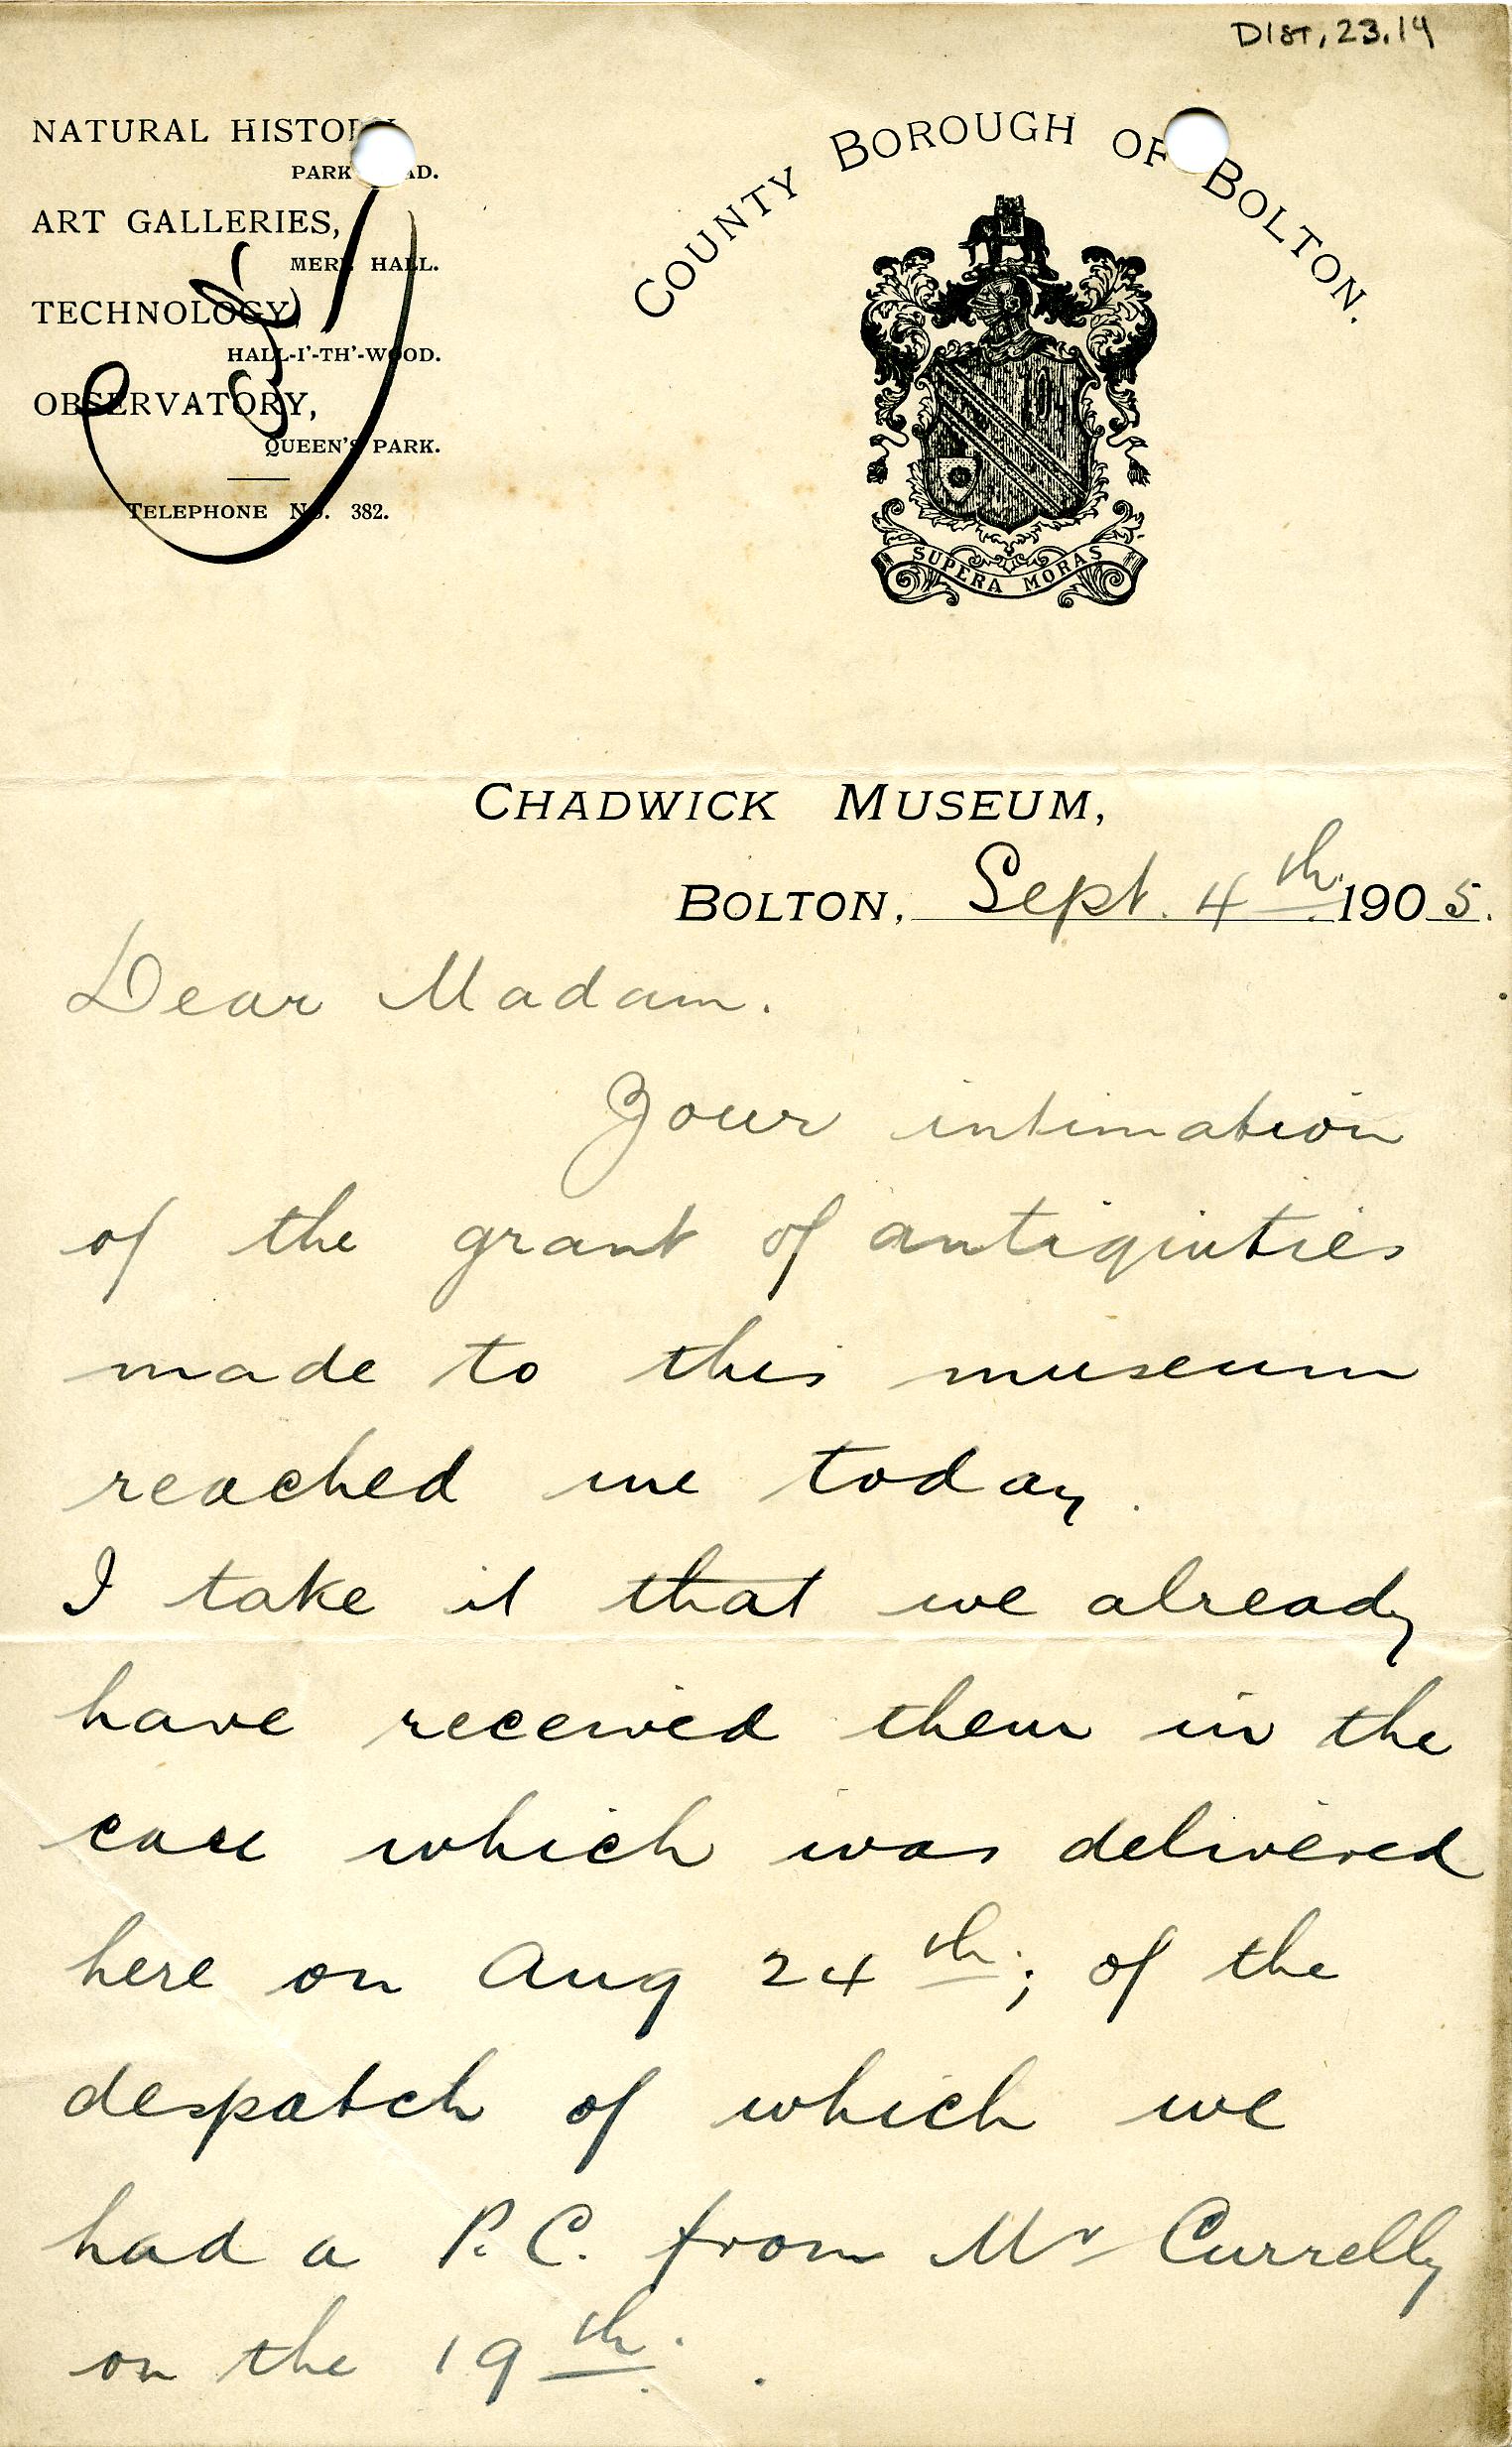 DIST, 23.14
NATURAL HISTORY,
PARK ROAD.
ART GALLERIES,
MERE HALL.
TECHNOLOGY,
HALL-I'-TH'-WOOD.
OBSERVATORY,
QUEEN'S PARK.
TELEPHONE No. 382.
COUNTY BOROUGH OF BOLTON.
SUPERA MORAS
CHADWICK MUSEUM,
BOLTON, Sept. 4th. 1905.
Dear Madam.
Your intimation
of the grant of antiquities
made to this museum
reached me today.
I take it that we already
have received them in the
case which was delivered
here on Aug 24th.; of the
despatch of which we
had a P.C. from Mr Currelly
on the 19th. .